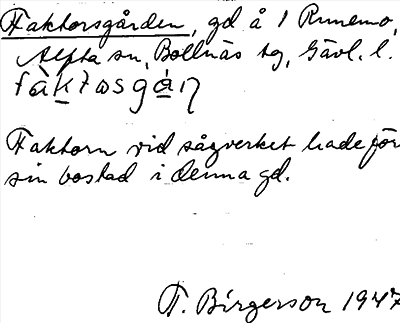 Faktorsgården, gd å 1 Runemo,
Alfta sn, Bollnäs tg, Gävl. l.
fàktωsgá̱ṇ
Faktorn vid sågverket hade för
sin bostad i denna gd.
T. Birgerson 1947